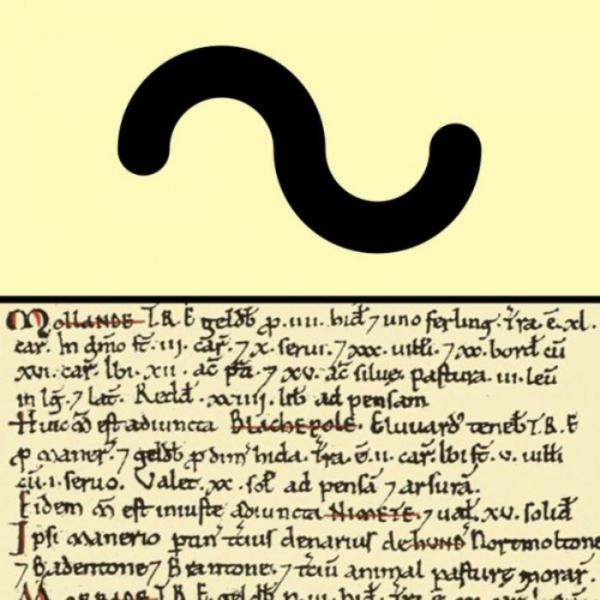 Mollande T.R.E geldb̄ ꝓ .iiii. hid̄ ⁊ uno ferling. T̄ra .ē. xl.
car̄. In dn̄io st̄ .iii. car̄. ⁊ x. serui. ⁊ xxx. uilƚi. ⁊ xx. bord̄ cū
xvi. car̄. Ibi .xii. ac̄ p̄ti. ⁊ xv. ac̄ siluę. pastura .iii. leū
in lḡ. ⁊ lat̄. Redd̄ .xxiiii. lib̄ ad pensam
Huic m̄ est adiuncta Blachepole. Eluuard' teneb̄ T.R.E
ꝓ maner̄. ⁊ geldb̄ ꝓ dim̄ hida. T̄ra .ē. ii. car̄. Ibi st̄ .v. uilƚi
cū .i. seruo. Valet .xx. sol̄ ad pensā ⁊ arsurā.
Eidem m̄ est iniuste adiuncta Nimete. ⁊ ual̄ .xv. solid̄
Ipsi manerio ptin̄ t̄cius denarius de hund̄ Nortmoltone
⁊ Badentone ⁊ Brantone. ⁊ t̄ciū animal pasturę morar̄.